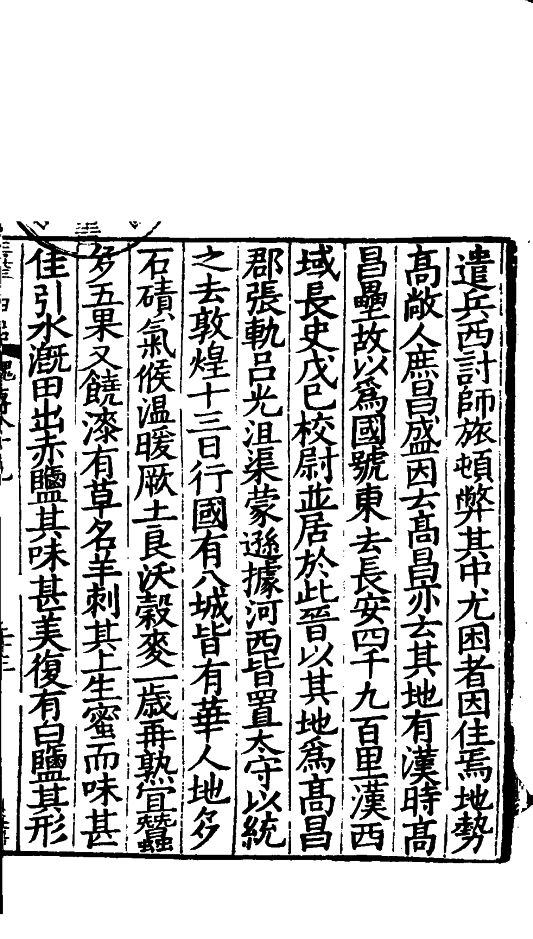 遣兵西討師旅頓弊其中尤困者因住焉地勢
髙敞人庶昌盛因云髙昌亦云其地有漢時髙
昌壘故以爲國號東去長安四千九百里漢西
域長史戊巳校尉並居於此晉以其地爲髙昌
郡張軌吕光沮渠蒙遜據河西皆置太守以統
之去敦煌十三日行國有八城皆有華人地多
石磧氣候温暖厥土良沃穀麥一歳再熟宜蠶
多五果又饒漆有草名羊刺其上生蜜而味甚
佳引水溉田出赤鹽其味甚美復有白鹽其形